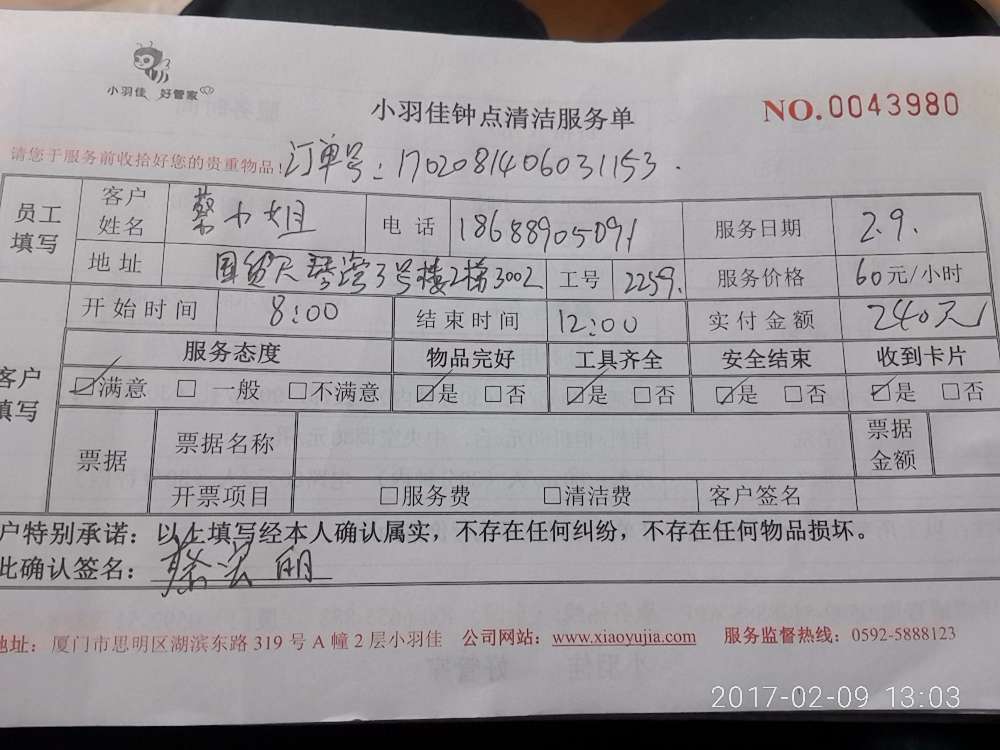 小羽佳 好管家
小羽佳钟点清洁服务单
NO.0043980
请您于服务前收拾好您的贵重物品!
订单号:170208140603​1153.
员工填写 客户姓名 蔡小姐 电话 18688905091 服务日期 2.9.
地址 国贸天琴湾3号楼2梯3002 工号 2259. 服务价格 60元/小时
开始时间 8:00 结束时间 12:00 实付金额 240元
客户填写 服务态度 物品完好 工具齐全 安全结束 收到卡片
☑满意 □一般 □不满意 ☑是 □否 ☑是 □否 ☑是 □否 ☑是 □否
票据 票据名称 票据金额
开票项目 □服务费 □清洁费 客户签名
户特别承诺:以上填写经本人确认属实,不存在任何纠纷,不存在任何物品损坏。
此确认签名:蔡
地址:厦门市思明区湖滨东路319号A幢2层小羽佳 公司网站:www.xiaoyujia.com 服务监督热线:0592-5888123
2017-02-09 13:03